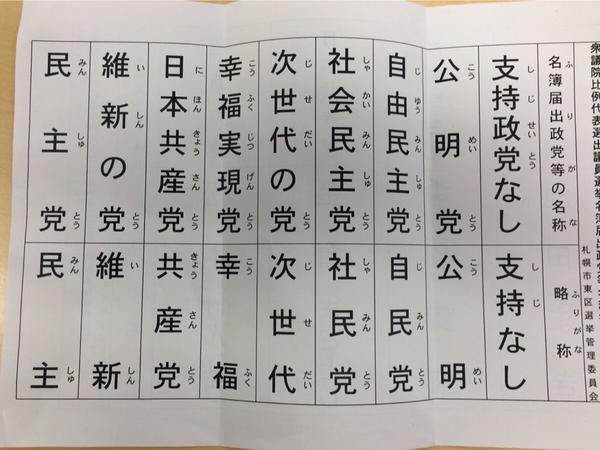 衆議院比例代表選出議員選挙名簿届出政党
札幌市東区選挙管理委員会
名簿届出政党等の名称
ふりがな
支持政党なし
しじせいとう
公明党
こうめいとう
自由民主党
じゆうみんしゅとう
社会民主党
しゃかいみんしゅとう
次世代の党
じせだいとう
幸福実現党
こうふくじつげんとう
日本共産党
にほんきょうさんとう
維新の党
いしんとう
民主党
みんしゅとう
略称
ふりがな
支持なし
しじ
公明
こうめい
自民党
じみんとう
社民党
しゃみんとう
次世代
じせだい
幸福
こうふく
共産党
きょうさんとう
維新
いしん
民主
みんしゅ